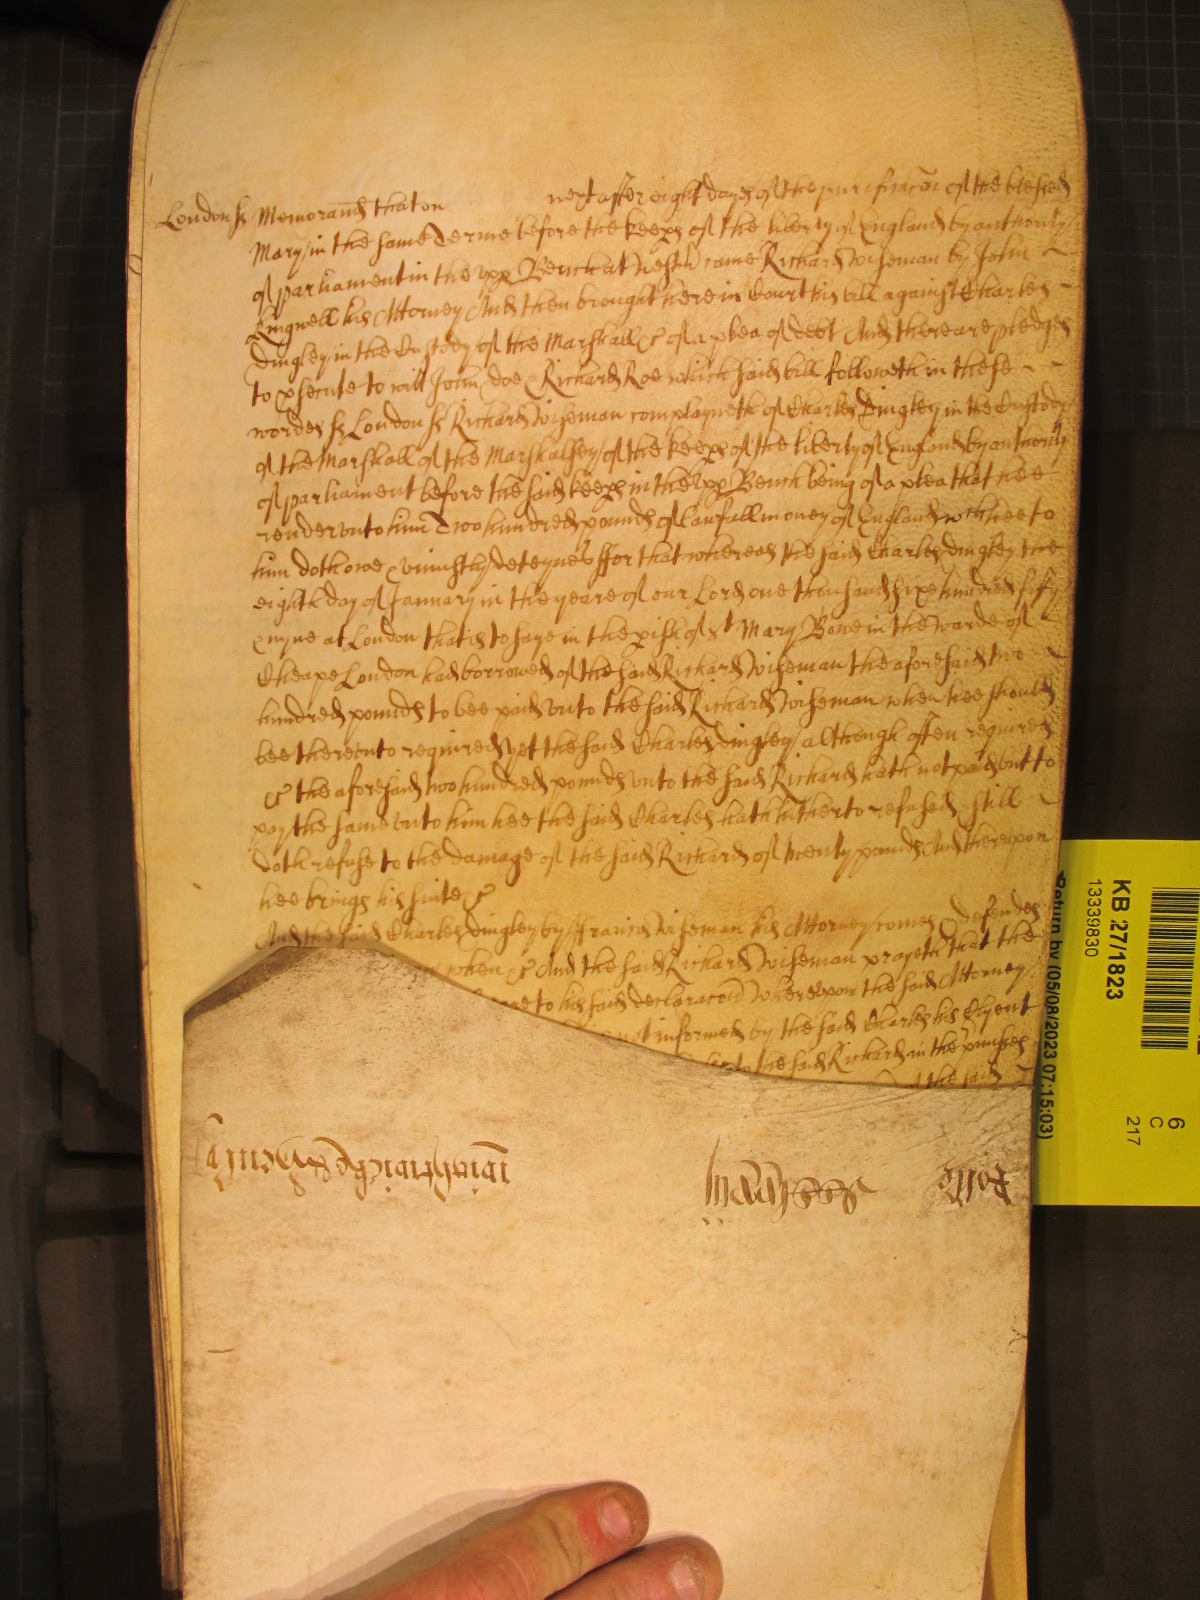 London ss Memorand that on next after eight dayes of the purificacon of the blessed
Mary in the same Terme before the keeps of the liberty of England by authority
of parliament in the upp Bench at Westm came Richard Wiseman by John
Lingwell his Attorney And then brought here in Court his bill against Charles
Dingley in the Custody of the Marshall &c of a plea of debt And there are pledges
to psecute to witt John Doe & Richard Roe which said bill followeth in these
wordes ss London ss Richard Wiseman complayneth of Charles Dingley in the Custody
of the Marshall of the Marshalsey of the keeps of the liberty of England by authority
of parliament before the said keeps in the upp Bench being of a plea that hee
render unto him Two hundred pounds of lawfull money of England wch hee to
him doth owe & uniustly deteynes ffor that whereas the said Charles Dingley the
eight day of January in the yeare of our Lord one thousand sixe hundred fifty
& nyne at London that is to saye in the pish of St Mary Bowe in the warde of
Cheape London had borrowed of the said Richard Wiseman the aforesaid two
hundred pounds to bee paid unto the said Richard Wiseman when hee should
bee thereunto required yet the said Charles Dingley although often required
&c the aforesaid two hundred pounds unto the said Richard hath not paid but to
pay the same unto him hee the said Charles hath hitherto refused & still
doth refuse to the damage of the said Richard of twenty pounds And thereupon
hee brings his suite &c
And the said Charles Dingley by ffrancis Wiseman his Attorney comes & defendes
when &c And the said Richard Wiseman prayeth that the
to his said declaracon Whereupon the said Attorney
not informed by the said Charles his Clyent
to the said Richard in the pmisses
the said
Rolle
KB 27/1823
13339830
Return by (05/08/2023 07:15:03)
6
C
217